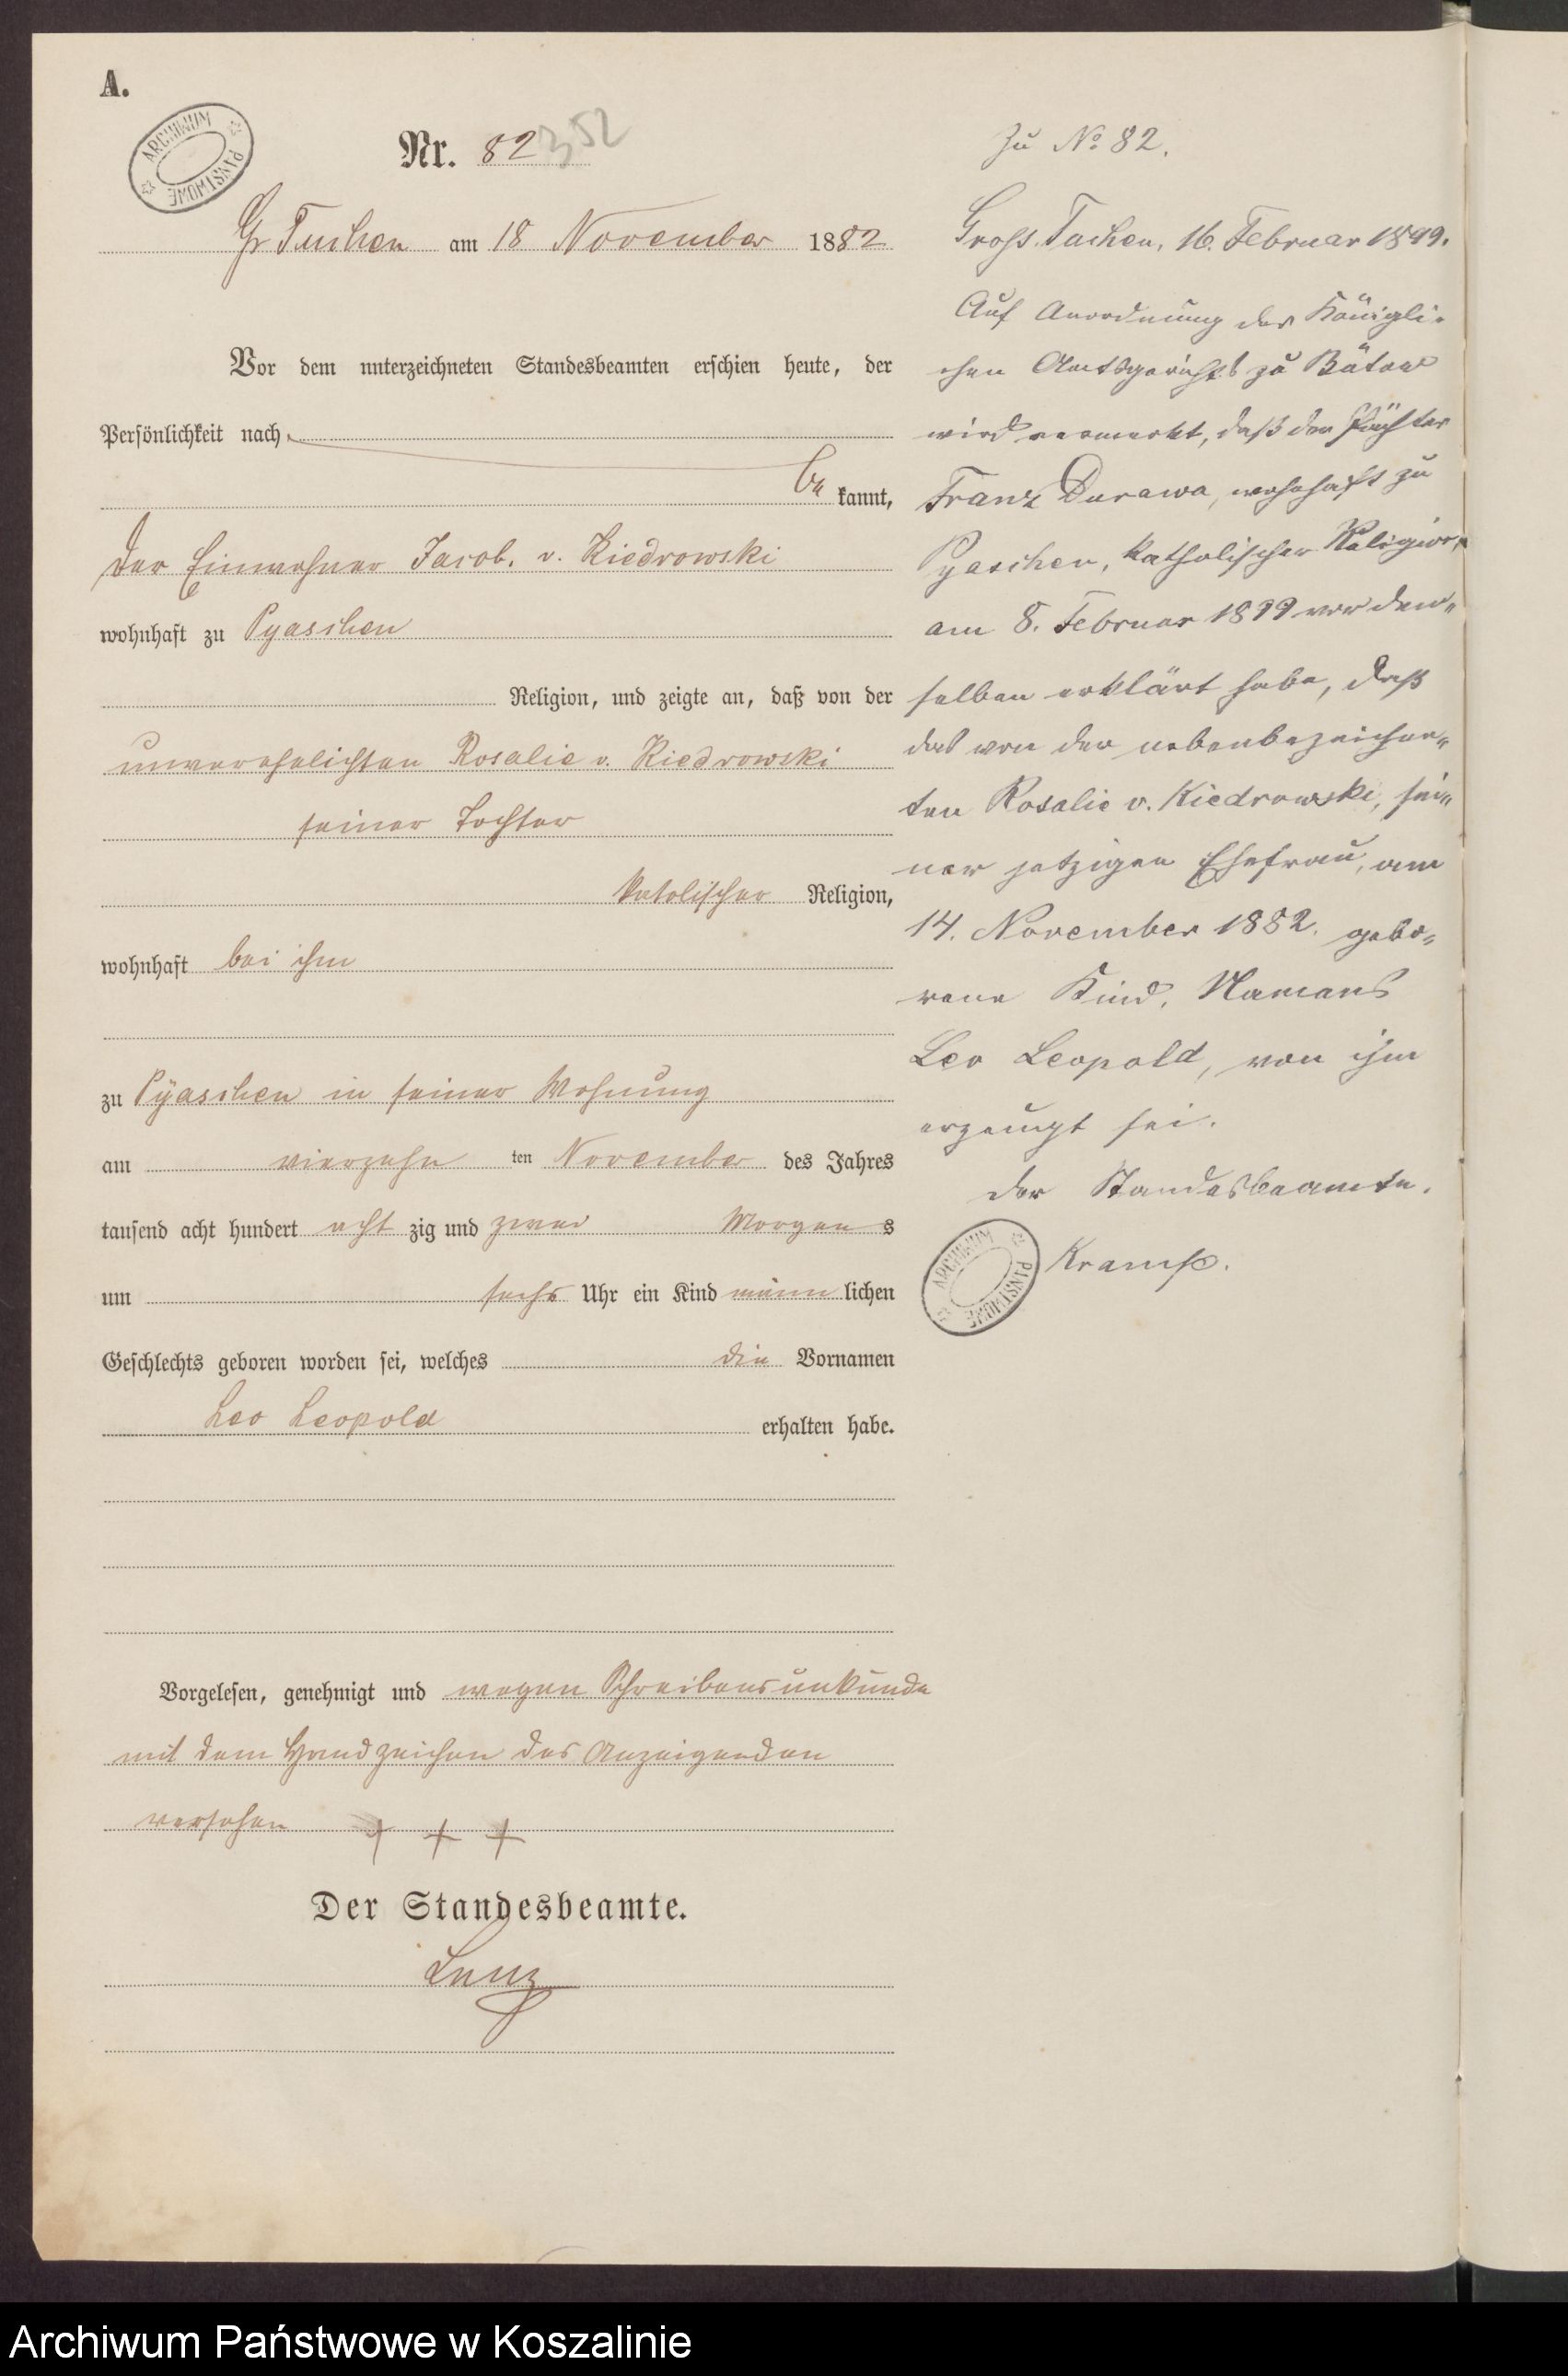 A.
ARCHIWUM PAŃSTWOWE
Nr. 82 352
Gr Tuchen am 18 November 1882
Vor dem unterzeichneten Standesbeamten erschien heute, der
Persönlichkeit nach
be kannt,
der Einwohner Jacob. v. Kiedrowski
wohnhaft zu Pyaschen
Religion, und zeigte an, daß von der
unverehelichten Rosalie v. Kiedrowski
seiner Tochter
katolischer Religion,
wohnhaft bei ihm
zu Pÿaschen in seiner Wohnung
am vierzehn ten November des Jahres
tausend acht hundert acht zig und zwei Morgen s
um sechs Uhr ein Kind männ lichen
Geschlechts geboren worden sei, welches die Vornamen
Leo Leopold erhalten habe.
Vorgelesen, genehmigt und wegen Schreibensunkunde
mit dem Handzeichen des Anzeigenden
versehen + + +
Der Standesbeamte.
Lenz
Zu No 82.
Gross Tuchen, 16. Februar 1899.
Auf Anordnung des Königli-
chen Amtsgerichts zu Bütow
wird vermerkt, daß der Pächter
Franz Durawa, wohnhaft zu
Pyaschen, katholischer Religion,
am 8. Februar 1899 vor dem-
selben erklärt habe, daß
das von der nebenbezeichne-
ten Rosalie v. Kiedrowski, sei-
ner jetzigen Ehefrau, am
14. November 1882. gebo-
rene Kind, Namens
Leo Leopold, von ihm
erzeugt sei.
Der Standesbeamte.
Kramp.
ARCHIWUM PAŃSTWOWE
Archiwum Państwowe w Koszalinie